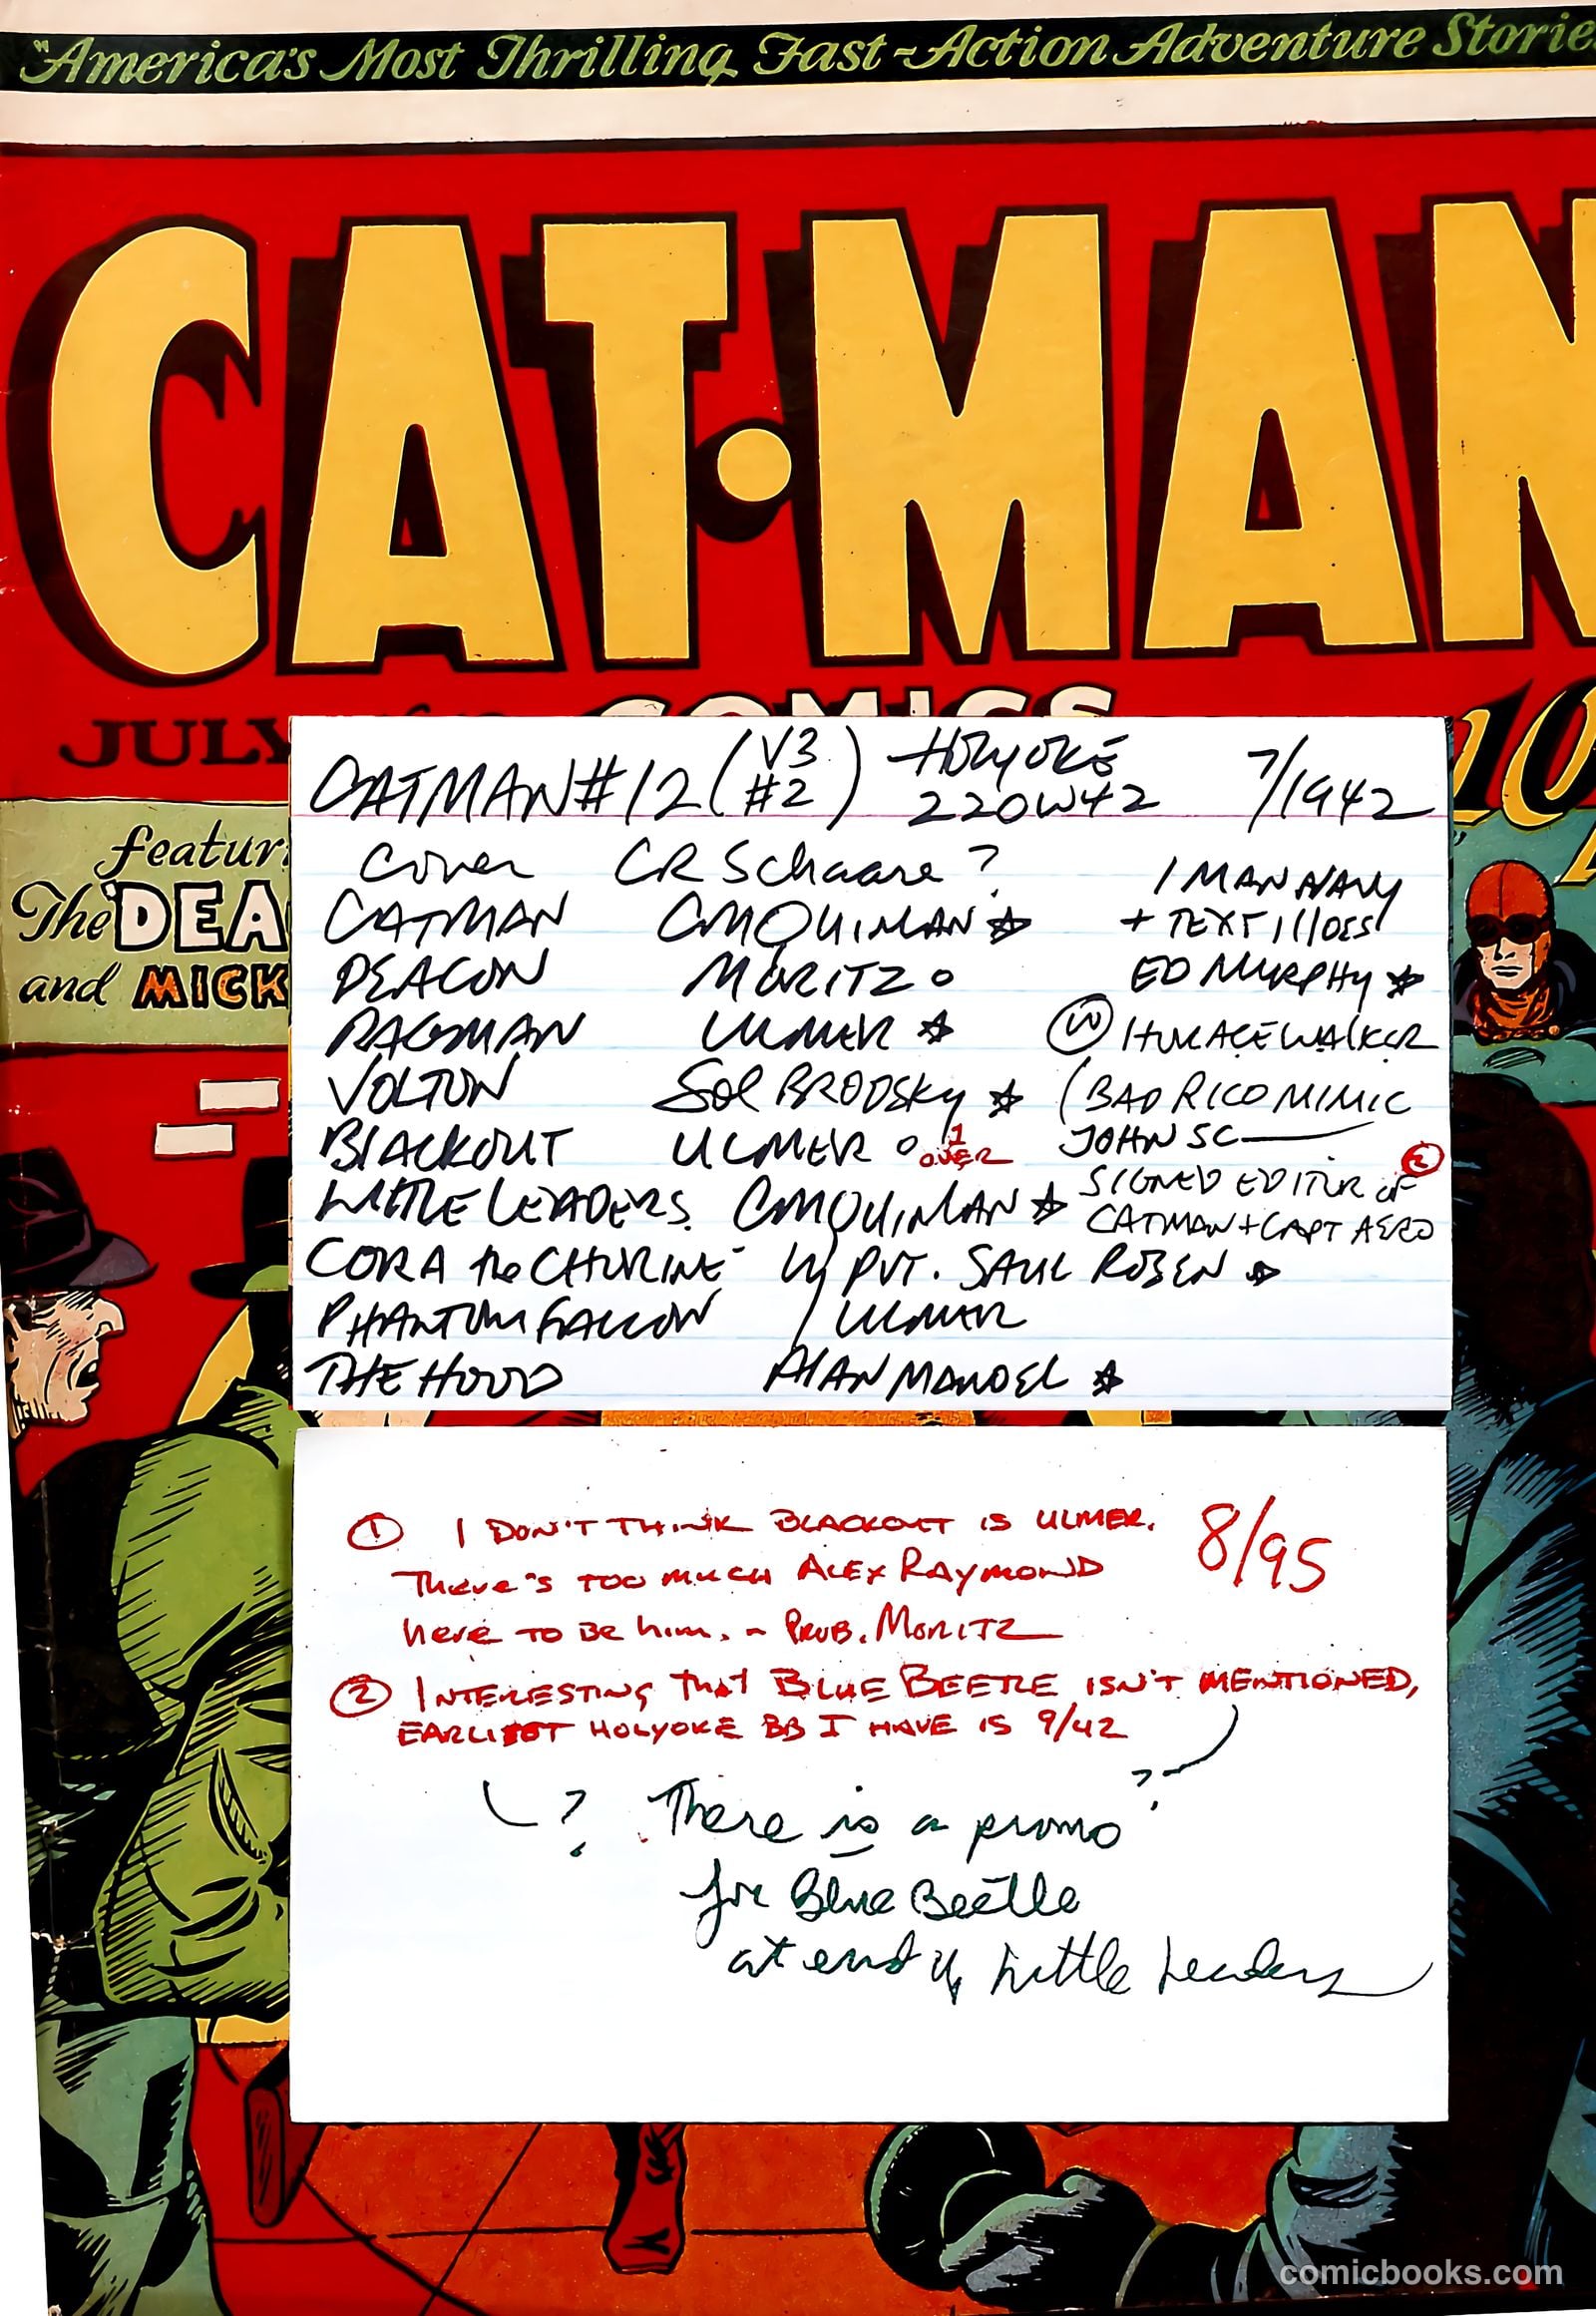 "America's Most Thrilling Fast-Action Adventure Storie
CAT·MAN
COMICS
JULY
10
featur
The DEA
and MICK
CATMAN #12 (V3 #2) HOLYOKE 220W42 7/1942
Cover CR Schaare?
CATMAN CMQUINLAN ☆
DEACON MORITZ o
RAGMAN ULMER ☆
VOLTON Sol BRODSKY ☆
BLACKOUT ULMER o 1 OVER
LITTLE LEADERS. CMQUINLAN ☆
CORA the CHORINE by PVT. SAUL ROSEN ☆
PHANTOM FALCON ULMER
THE HOOD ALAN MANDEL ☆
1 MAN NAVY
+ TEXT ILLOES
ED MURPHY ☆
(W) HORACE WALKER
(BAD RICO MIMIC
JOHN SC
SIGNED EDITOR OF 2
CATMAN + CAPT AERO
① I DON'T THINK BLACKOUT IS ULMER. 8/95
There's TOO MUCH ALEX RAYMOND
here TO BE him. – PROB. MORITZ
② INTERESTING THAT BLUE BEETLE ISN'T MENTIONED,
EARLIEST HOLYOKE BB I HAVE IS 9/42
? There is a promo ?
for Blue Beetle
at end of Little Leaders
comicbooks.com